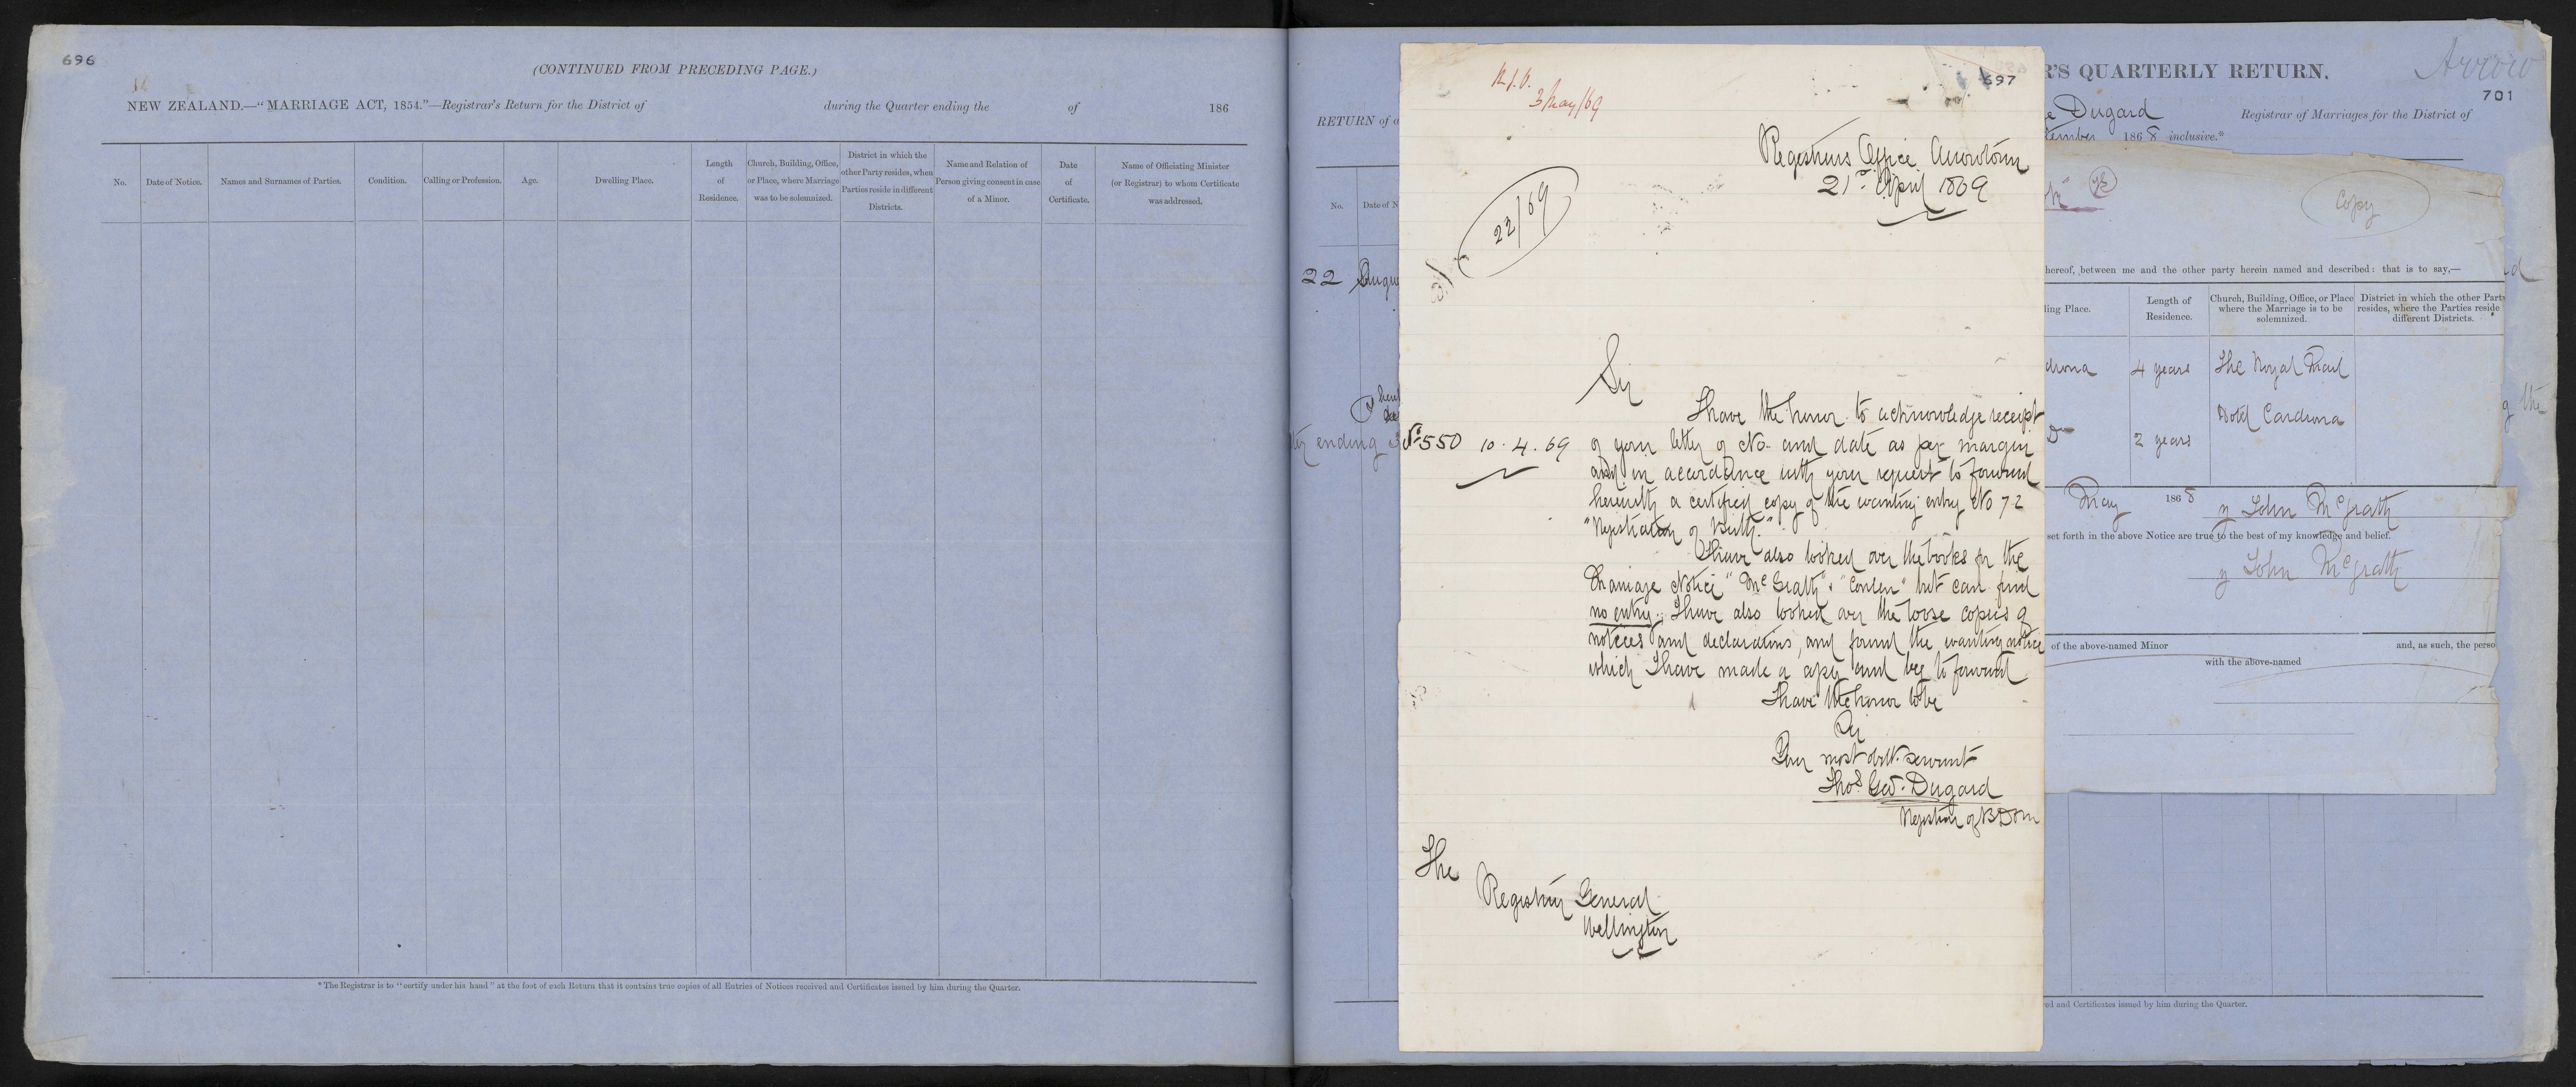 696
(CONTINUED FROM PRECEDING PAGE.)
NEW ZEALAND.—"MARRIAGE ACT, 1854."—Registrar's Return for the District of during the Quarter ending the of 186
No.
Date of Notice.
Names and Surnames of Parties.
Condition.
Calling or Profession.
Age.
Dwelling Place.
Length
of
Residence.
Church, Building, Office,
or Place, where Marriage
was to be solemnized.
District in which the
other Party resides, when
Parties reside in different
Districts.
Name and Relation of
Person giving consent in case
of a Minor.
Date
of
Certificate.
Name of Officiating Minister
(or Registrar) to whom Certificate
was addressed.
*The Registrar is to "certify under his hand" at the foot of each Return that it contains true copies of all Entries of Notices received and Certificates issued by him during the Quarter.
RETURN of a
No.
Date of N
22 Augu
ending 3
3 May/69
697
Registrars Office Arrowtown
21st April 1869
22/69
Sir
I have the honor to acknowledge receipt
No 550 10.4.69 of your letter of No. and date as per margin
and in accordance with your request to forward
herewith a certified copy of the wanting entry No 72
"Registration of Births."
I have also looked over the books for the
Marriage Notice "McGrath" & "Conlen" but can find
no entry. I have also looked over the loose copies of
notices and declarations, and found the wanting notice
which I have made a copy and beg to forward
I have the honor to be
Sir
Your most obdt. servant
Thos Geo. Dugard
Registrar of B D & M
The
Registrar General
Wellington
R'S QUARTERLY RETURN.
Arrow
701
e Dugard Registrar of Marriages for the District of
tember 1868 inclusive.*
Copy
hereof, between me and the other party herein named and described: that is to say,—
ling Place.
Length of
Residence.
Church, Building, Office, or Place
where the Marriage is to be
solemnized.
District in which the other Party
resides, where the Parties reside
different Districts.
drona 4 years The Royal Mail
Hotel Cardrona
Do 2 years
g the
May 1868 John McGrath
set forth in the above Notice are true to the best of my knowledge and belief.
John McGrath
of the above-named Minor and, as such, the perso
with the above-named
ed and Certificates issued by him during the Quarter.